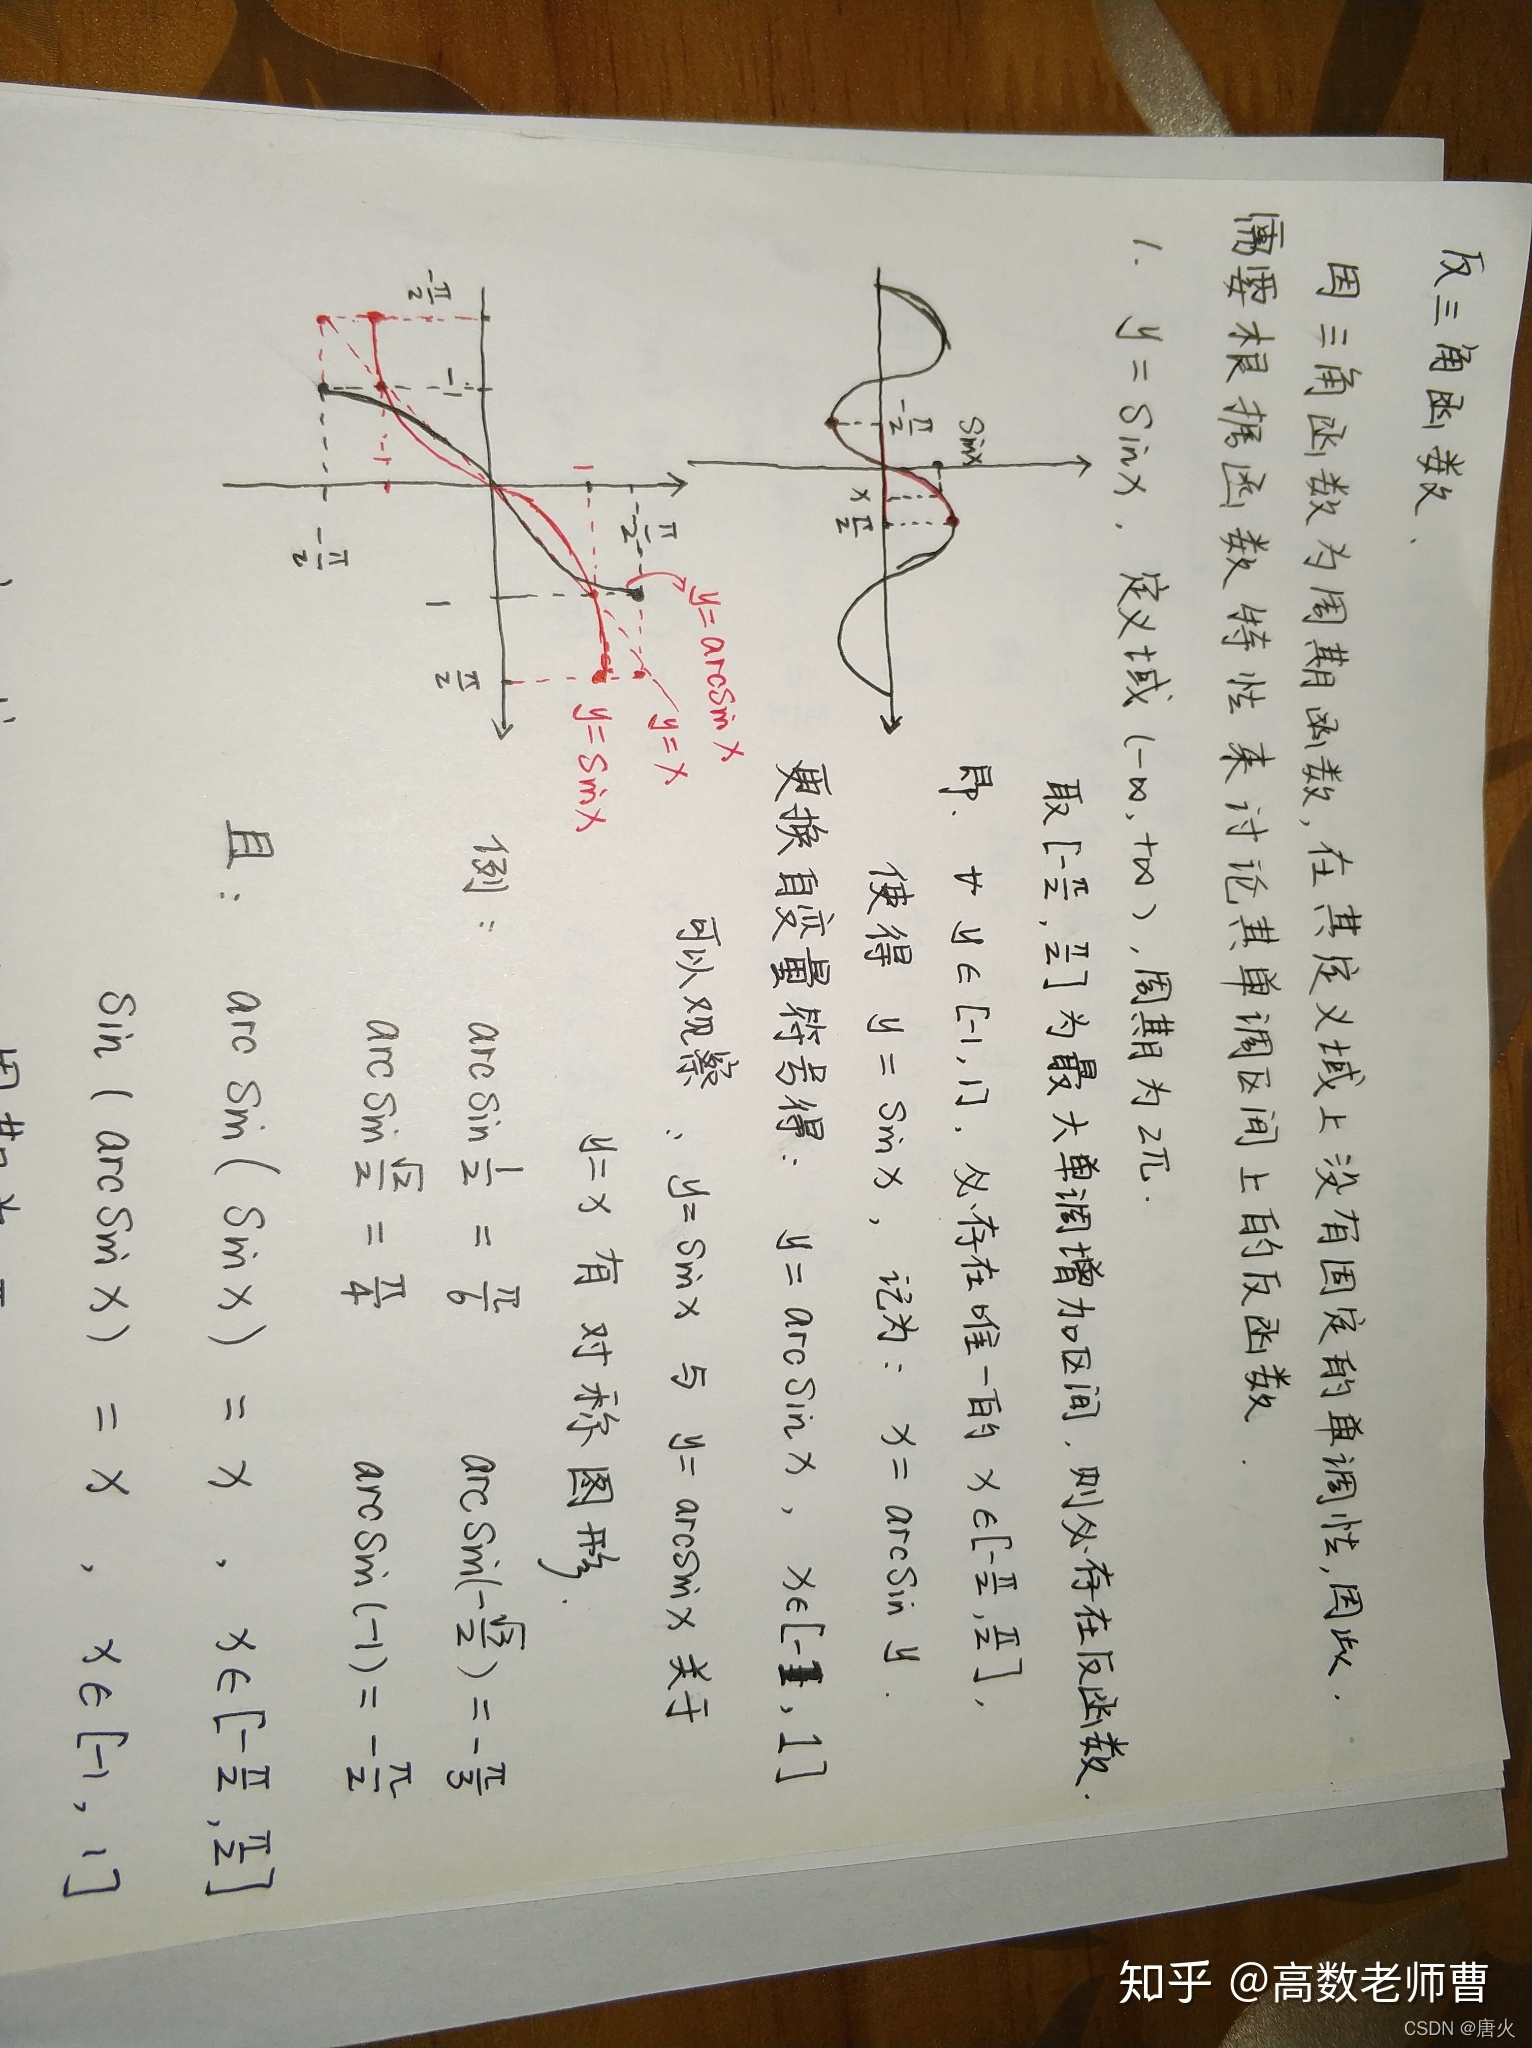 反三角函数、
因三角函数为周期函数,在其定义域上没有固定的单调性,因此.
需要根据函数特性来讨论其单调区间上的反函数.
1. y=Sinx. 定义域(-∞,+∞),周期为2π.
取[-π/2,π/2]为最大单调增加区间.则必存在反函数.
即. ∀ y∈[-1,1]. 必存在唯一的 x∈[-π/2,π/2],
使得 y=Sinx, 记为: x=arcSin y.
更换自变量符号得: y=arcSinx, x∈[-1,1]
可以观察、y=Sinx 与 y=arcSinx 关于
y=x 有对称图形.
Sinx
-π/2
x
π/2
π/2
1
-π/2
-1
1
π/2
-1
-π/2
y=arcSinx
y=x
y=Sinx
例: arcSin 1/2 = π/6 arcSin(-√3/2) = -π/3
arcSin √2/2 = π/4 arcSin(-1) = -π/2
且: arcSin(Sinx) = x , x∈[-π/2,π/2]
Sin(arcSinx) = x , x∈[-1,1]
知乎 @高数老师曹
CSDN @唐火